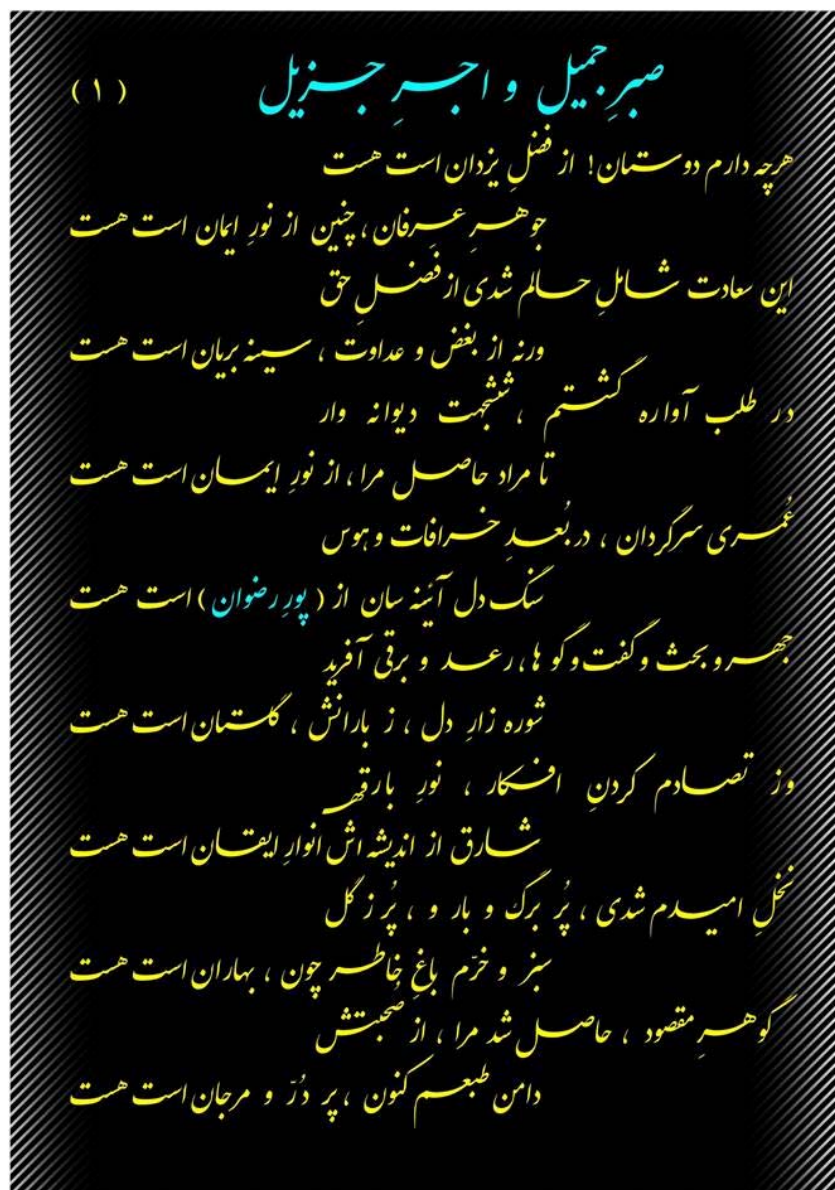 صبرِ جمیل و اجرِ جزیل (۱)
هرچه دارم دوستان! از فضلِ یزدان است هست
جوهرِ عرفان، چنین از نورِ ایمان است هست
این سعادت شاملِ حالم شدی از فضلِ حق
ورنه از بغض و عداوت، سینه بریان است هست
در طلب آواره گشتم، ششجهت دیوانه وار
تا مراد حاصل مرا، از نورِ ایمان است هست
عُمری سرگردان، در بُعدِ خرافات و هوس
سنگ دل آئینه سان از (پورِ رضوان) است هست
جهر و بحث و گفت و گو ها، رعد و برقی آفرید
شوره زارِ دل، ز بارانش، گلستان است هست
وز تصادم کردنِ افکار، نورِ بارقه
شارق از اندیشه اش انوارِ ایقان است هست
نخلِ امیدم شدی، پُر برگ و بار و، پُر ز گل
سبز و خرّم باغِ خاطر چون، بهاران است هست
گوهرِ مقصود، حاصل شد مرا، از صُحبتش
دامن طبعم کنون، پر دُرّ و مرجان است هست